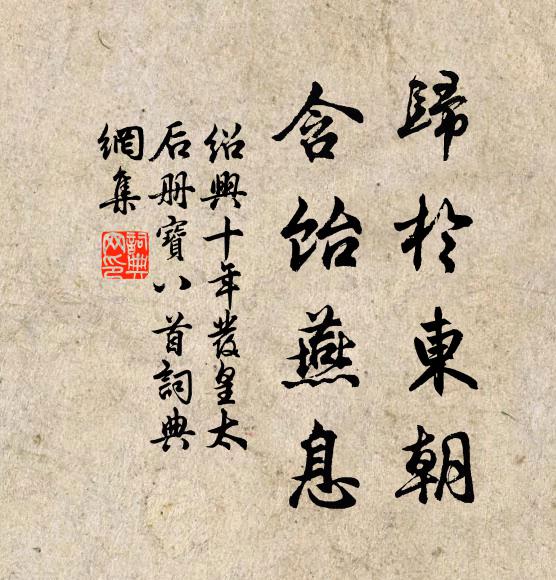 歸於東朝
含飴燕息
紹興十年發皇太
后册寶八首詞典
網集
詞典
网印